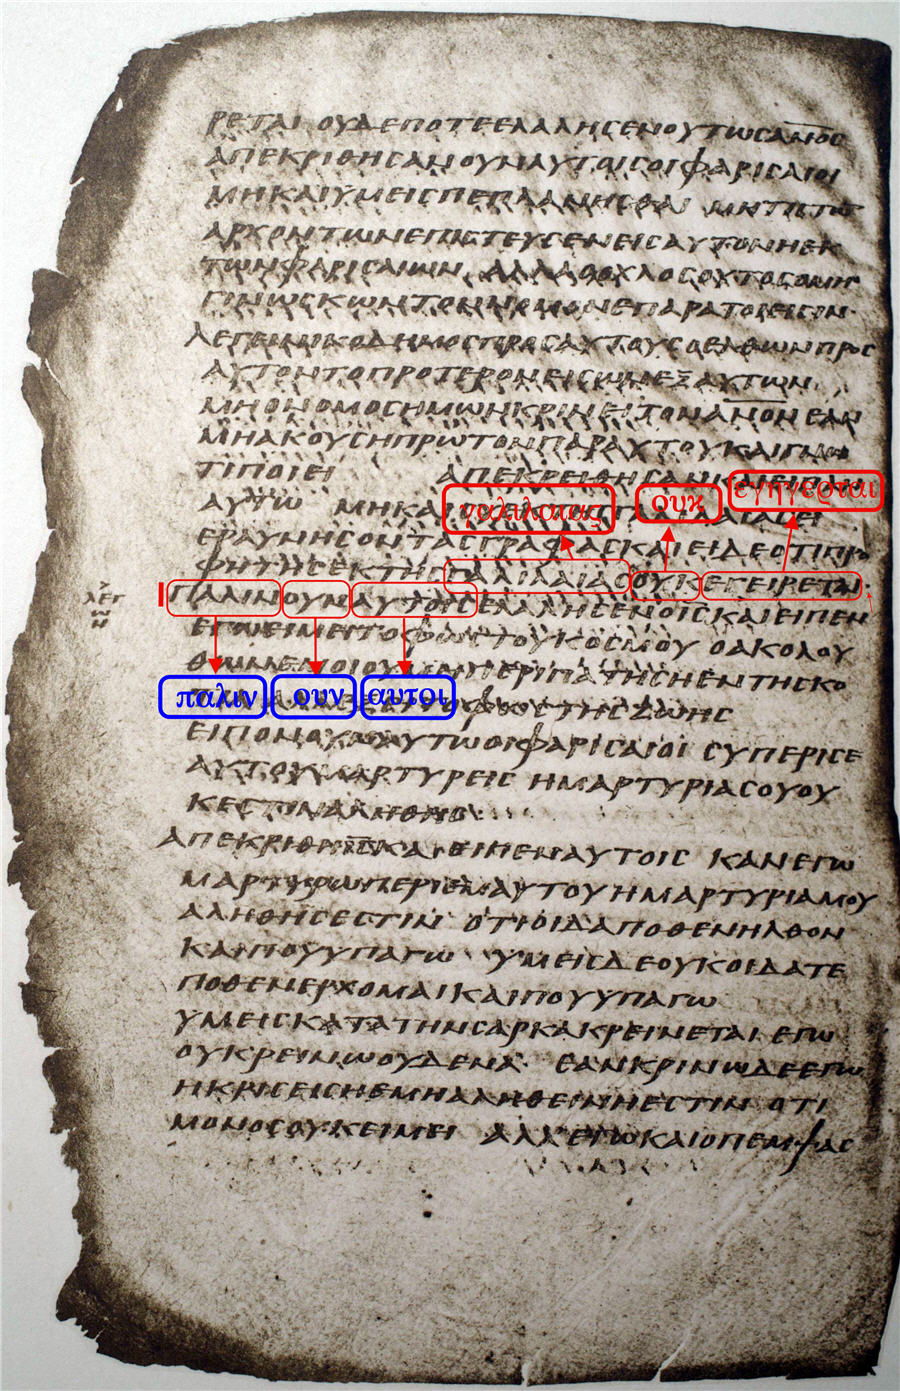 ΡΕΤΑΙ ΟΥΔΕΠΟΤΕΕΛΑΛΗCΕΝΟΥΤΩCΑΝΟC
ΑΠΕΚΡΙΘΗCΑΝΟΥΝΑΥΤΟΙCΟΙΦΑΡΙCΑΙΟΙ
ΜΗΚΑΙΥΜΕΙCΠΕΠΛΑΝΗCΘΑΙ ΜΗΤΙCΤΩ
ΑΡΧΟΝΤΩΝΕΠΙCΤΕΥCΕΝΕΙCΑΥΤΟΝΗΕΚ
ΤΩΝΦΑΡΙCΑΙΩΝ ΑΛΛΑΟΧΛΟCΟΥΤΟCΟΜΗ
ΓΙΝΩCΚΩΝΤΟΝΝΟΜΟΝΕΠΑΡΑΤΟΙΕΙCΙΝ·
ΛΕΓΕΙΝΙΚΟΔΗΜΟCΠΡΟCΑΥΤΟΥCΟΕΛΘΩΝΠΡΟC
ΑΥΤΟΝΤΟΠΡΟΤΕΡΟΝΕΙCΩΝΕΞΑΥΤΩΝ
ΜΗΟΝΟΜΟCΗΜΩΝΚΡΙΝΕΙΤΟΝΑΝΟΝΕΑΝ
ΜΗΑΚΟΥCΗΠΡΩΤΟΝΠΑΡΑΥΤΟΥΚΑΙΓΝΩ
ΤΙΠΟΙΕΙ ΑΠΕΚΡΕΙΘΗCΑΝΚΑΙ
εγηγερται
ΑΥΤΩ ΜΗΚΑΙ
γαλιλαιας ουκ
ΕΡΑΥΝΗCΟΝΤΑCΓΡΑΦΑCΚΑΙΕΙΔΕΟΤΙΠΡΟ
ΦΗΤΗCΕΚΤΗCΓΑΛΙΛΑΙΑCΟΥΚΕΓΕΙΡΕΤΑΙ·
ΠΑΛΙΝΟΥΝΑΥΤΟΙCΕΛΑΛΗCΕΝΟΙCΚΑΙΕΙΠΕΝ
ΕΓΩΕΙΜΕΙΤΟΦΩCΤΟΥΚΟCΜΟΥ ΟΑΚΟΛΟΥ
ΘΩΝΕΜΟΙΟΥΜΗΠΕΡΙΠΑΤΗCΗΕΝΤΗCΚΟ
παλιν ουν αυτοι ΦΩCΤΗCΖΩΗC
ΕΙΠΟΝΟΥΝΑΥΤΩΟΙΦΑΡΙCΑΙΟΙ CΥΠΕΡΙCΕ
ΑΥΤΟΥΜΑΡΤΥΡΕΙC ΗΜΑΡΤΥΡΙΑCΟΥΟΥ
ΚΕCΤΙΝΑΛΗΘΗC
ΑΠΕΚΡΙΘΗΙCΚΑΙΕΙΠΕΝΑΥΤΟΙC ΚΑΝΕΓΩ
ΜΑΡΤΥΡΩΠΕΡΙΕΜΑΥΤΟΥΗΜΑΡΤΥΡΙΑΜΟΥ
ΑΛΗΘΗCΕCΤΙΝ ΟΤΙΟΙΔΑΠΟΘΕΝΗΛΘΟΝ
ΚΑΙΠΟΥΥΠΑΓΩ ΥΜΕΙCΔΕΟΥΚΟΙΔΑΤΕ
ΠΟΘΕΝΕΡΧΟΜΑΙΚΑΙΠΟΥΥΠΑΓΩ
ΥΜΕΙCΚΑΤΑΤΗΝCΑΡΚΑΚΡΕΙΝΕΤΑΙ ΕΓΩ
ΟΥΚΡΕΙΝΩΟΥΔΕΝΑ· ΕΑΝΚΡΙΝΩΔΕΕΓΩ
ΗΚΡΙCΕΙCΗΕΜΗΑΛΗΘΕΙΝΗΕCΤΙΝ ΟΤΙ
ΜΟΝΟCΟΥΚΕΙΜΕΙ ΑΛΛΕΓΩΚΑΙΟΠΕΜΨΑC